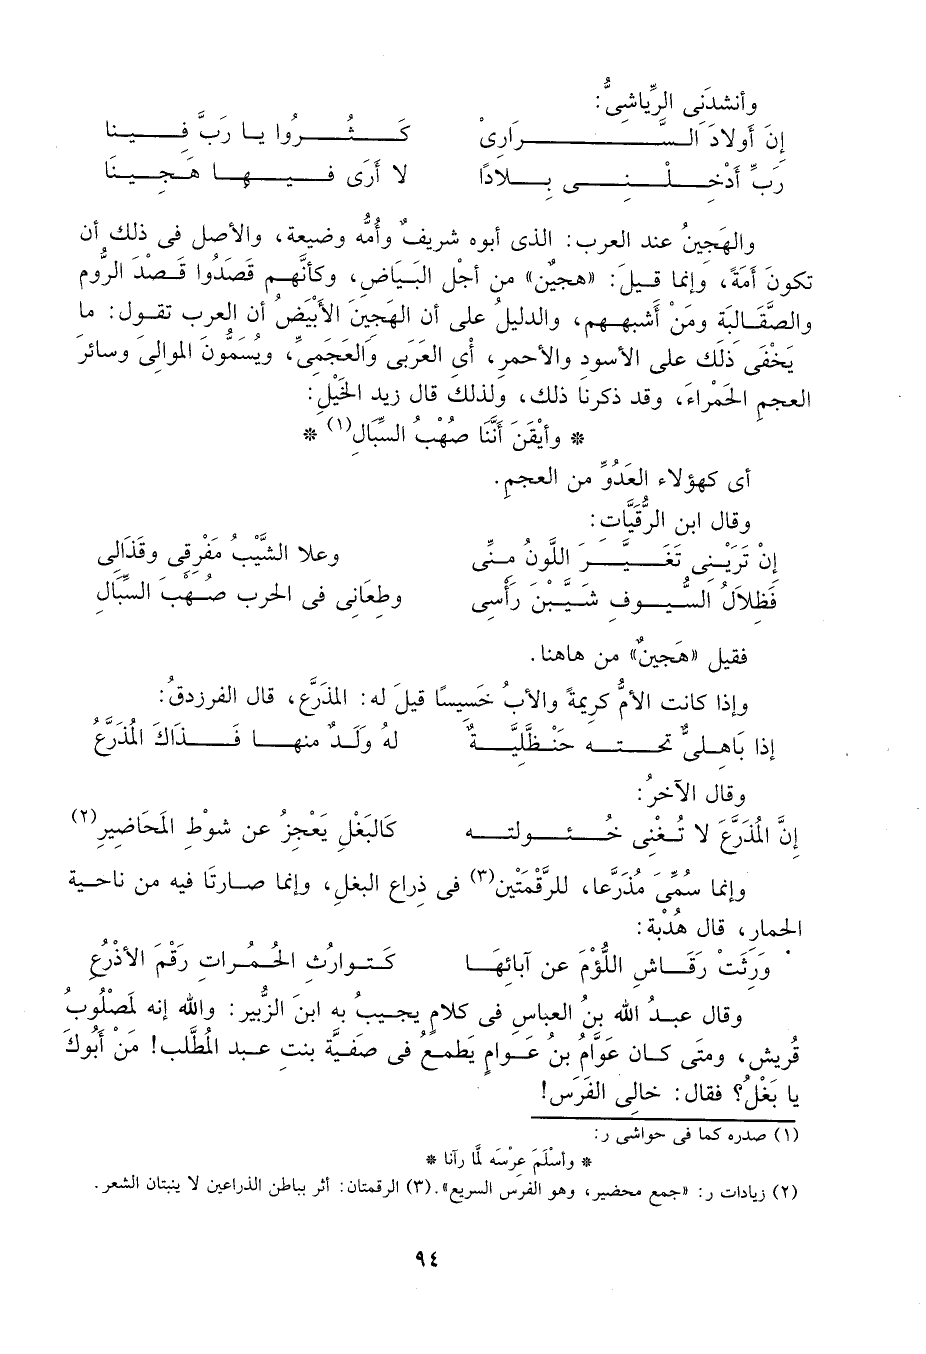 وأنشدَنى الرِّياشىُّ:
إن أولادَ السَّرَارىْ كَثُروا يا رَبَّ فِينا
رَبِّ أدْخلْنى بِلادًا لا أرَى فيها هَجِينَا
والهَجينُ عند العرب: الذى أبوه شريفٌ وأمُّه وضيعة، والأصل فى ذلك أن
تكونَ أمَةً، وإنما قيلَ: «هجينٌ» من أجْل البَيَاض، وكأنَّهم قَصَدُوا قَصْدَ الرُّوم
والصَّقَالبَة ومَنْ أشبههم، والدليلُ على أن الهَجينَ الأبْيَضُ أن العرب تقول: ما
يَخْفَى ذَلك على الأسود والأحمر، أى العَرَبى والعَجَمىِّ، ويُسَمُّونَ الموالىَ وسائرَ
العجمِ الحَمْراءَ، وقد ذكرنا ذلك، ولذلك قال زيد الخَيْلِ:
* وأيْقَنَ أنَّنَا صُهْبُ السِّبَالِ(١) *
أى كهؤلاء العَدُوِّ من العجمِ.
وقال ابن الرُّقَيَّات:
إنْ تَرَيْنى تَغَيَّرَ اللَّونُ منِّى وعلا الشَّيْبُ مَفْرِقِى وقَذَالى
فَظِلاَلُ السُّيوفِ شَيَّبْنَ رَأْسِى وطِعَانِى فى الحرب صُهْبَ السِّبَالِ
فقيل «هَجينٌ» من هاهنا.
وإذا كانت الأمُّ كريمةً والأبُ خَسِيسًا قيلَ له: المذَرَّع، قال الفرزدقُ:
إذا بَاهلىٌّ تحته حَنْظَلِيَّةٌ لهُ ولَدٌ منها فَذَاكَ المُذَرَّعُ
وقال الآخرُ:
إنَّ المُذَرَّعَ لا تُغْنِى خُئولته كَالبَغْلِ يَعْجزُ عن شَوْطِ المَحَاضِيرِ(٢)
وإنما سُمِّىَ مُذَرَّعا، للرَّقْمَتَيْنِ(٣) فى ذِراع البغل، وإنما صارتَا فيه من ناحية
الحمار، قال هُدْبة:
وَرَثَتْ رَقَاشِ اللُّؤْمَ عن آبائهَا كتوارثِ الحُمُراتِ رَقْمَ الأذْرُعِ
وقال عبدُ الله بنُ العباسِ فى كلامٍ يجيبُ به ابنَ الزُّبير: والله إنه لَمَصْلُوبُ
قُريش، ومتَى كان عَوَّامُ بنُ عَوامٍ يَطمَعُ فى صفيَّة بنتِ عبد المُطَّلب! مَنْ أبُوكَ
يا بَغْلُ؟ فقال: خالى الفَرَس!
(١) صدره كما فى حواشى ر:
* وأسْلَمَ عِرْسَه لمَّا رآنا *
(٢) زيادات ر: «جمع محضير، وهو الفرس السريع». (٣) الرقمتان: أثر بباطن الذراعين لا ينبتان الشعر.
٩٤